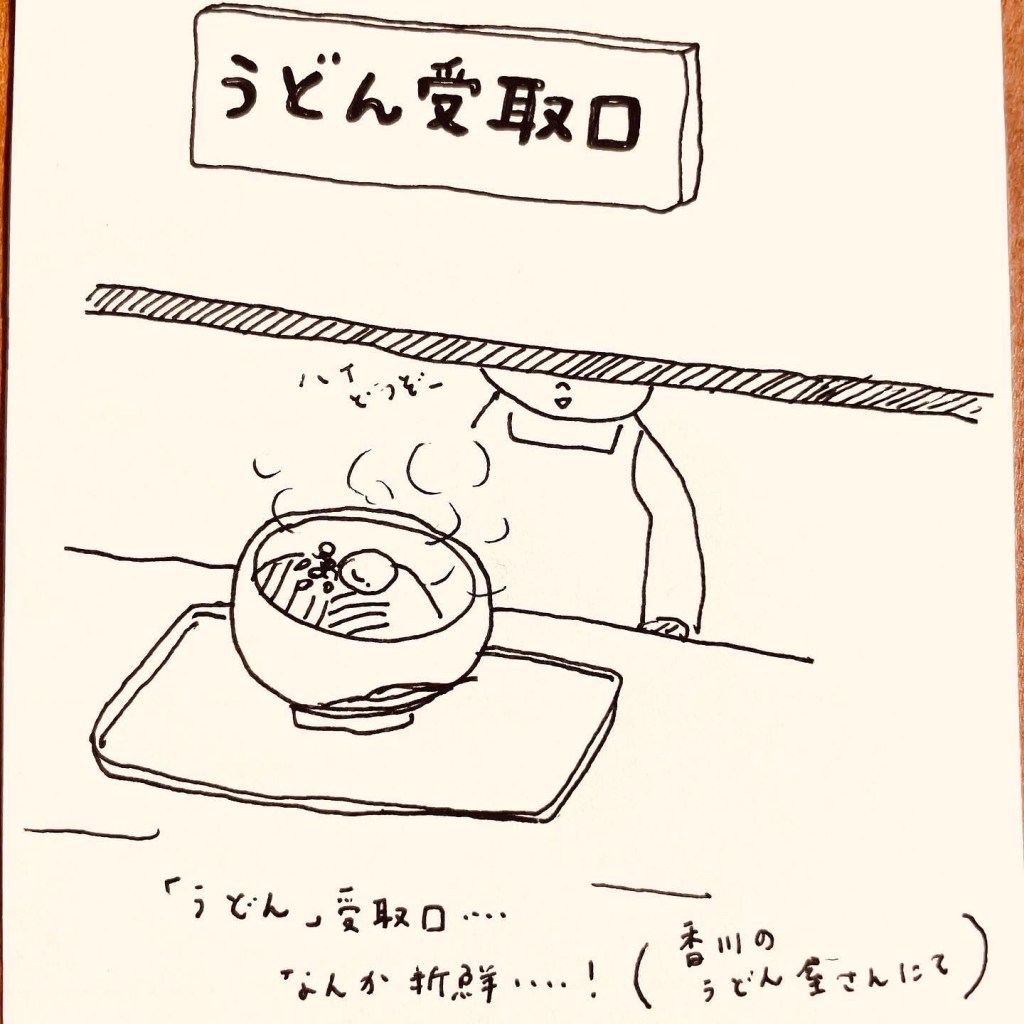 うどん受取口
ハイ
どうぞー
「うどん」受取口‥‥
なんか新鮮‥‥！
（香川の
うどん屋さんにて）